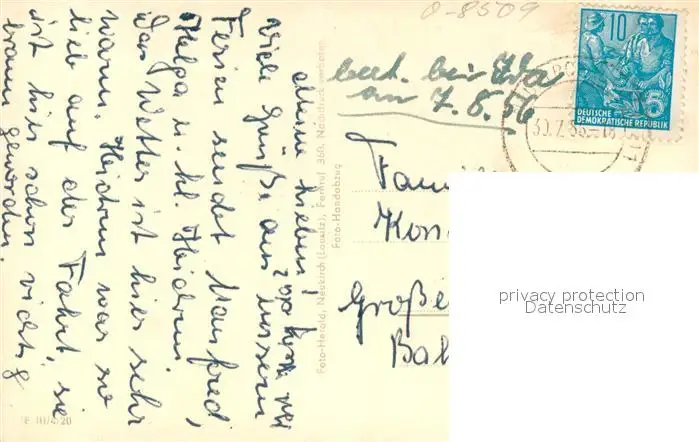 Meine Lieben!
Viele Grüße aus unseren
Ferien sendet Manfred,
Helga u. kl. Heidrun.
Das Wetter ist hier sehr
warm. Heidrun war so
lieb auf der Fahrt, sie
ist hier schon richtig
braun geworden.
F III/4/20
Foto-Herold, Neukirch (Lausitz), Fernruf 360, Nachdruck verboten
Foto-Handabzug
0-8509
beet. bei
am 7.8.56
10
DEUTSCHE
DEMOKRATISCHE REPUBLIK
30.7.56.-18
Fami
Kon
Große
Bal
privacy protection
Datenschutz